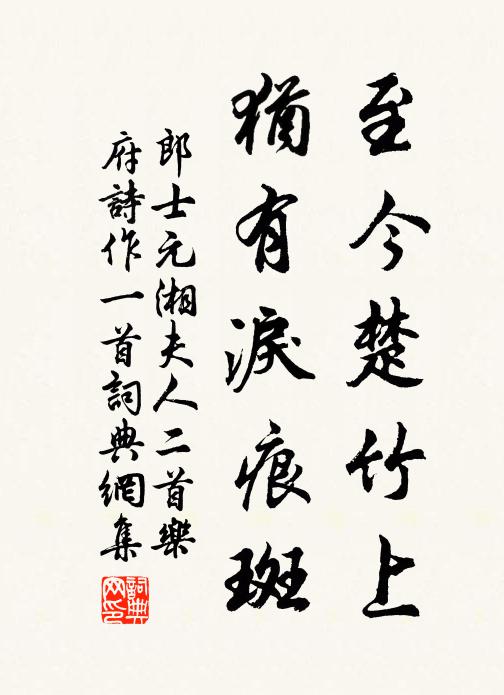 至今楚竹上
猶有淚痕斑
郎士元湘夫人二首樂
府詩作一首詞典網集
詞典
网印